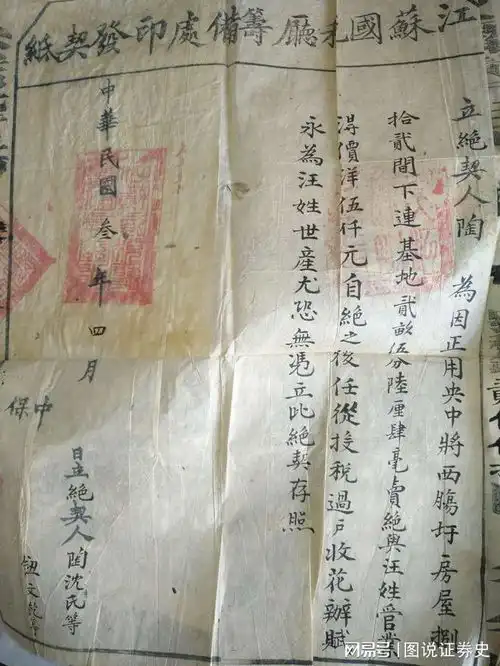 江蘇國稅廳籌備處印發契紙
立絕契人陶
為因正用央中將西腸圩房屋捌
拾貳間下連基地貳畝伍分陸厘肆毫賣絕與汪姓管業
淂價洋伍仟元自絕之後任從投稅過戶收花辦賦
永為汪姓世產尢恐無憑立此絕契存照
中華民國叁年四月
日立絕契人陶沈氏等
中保
網易号 | 图说证券史